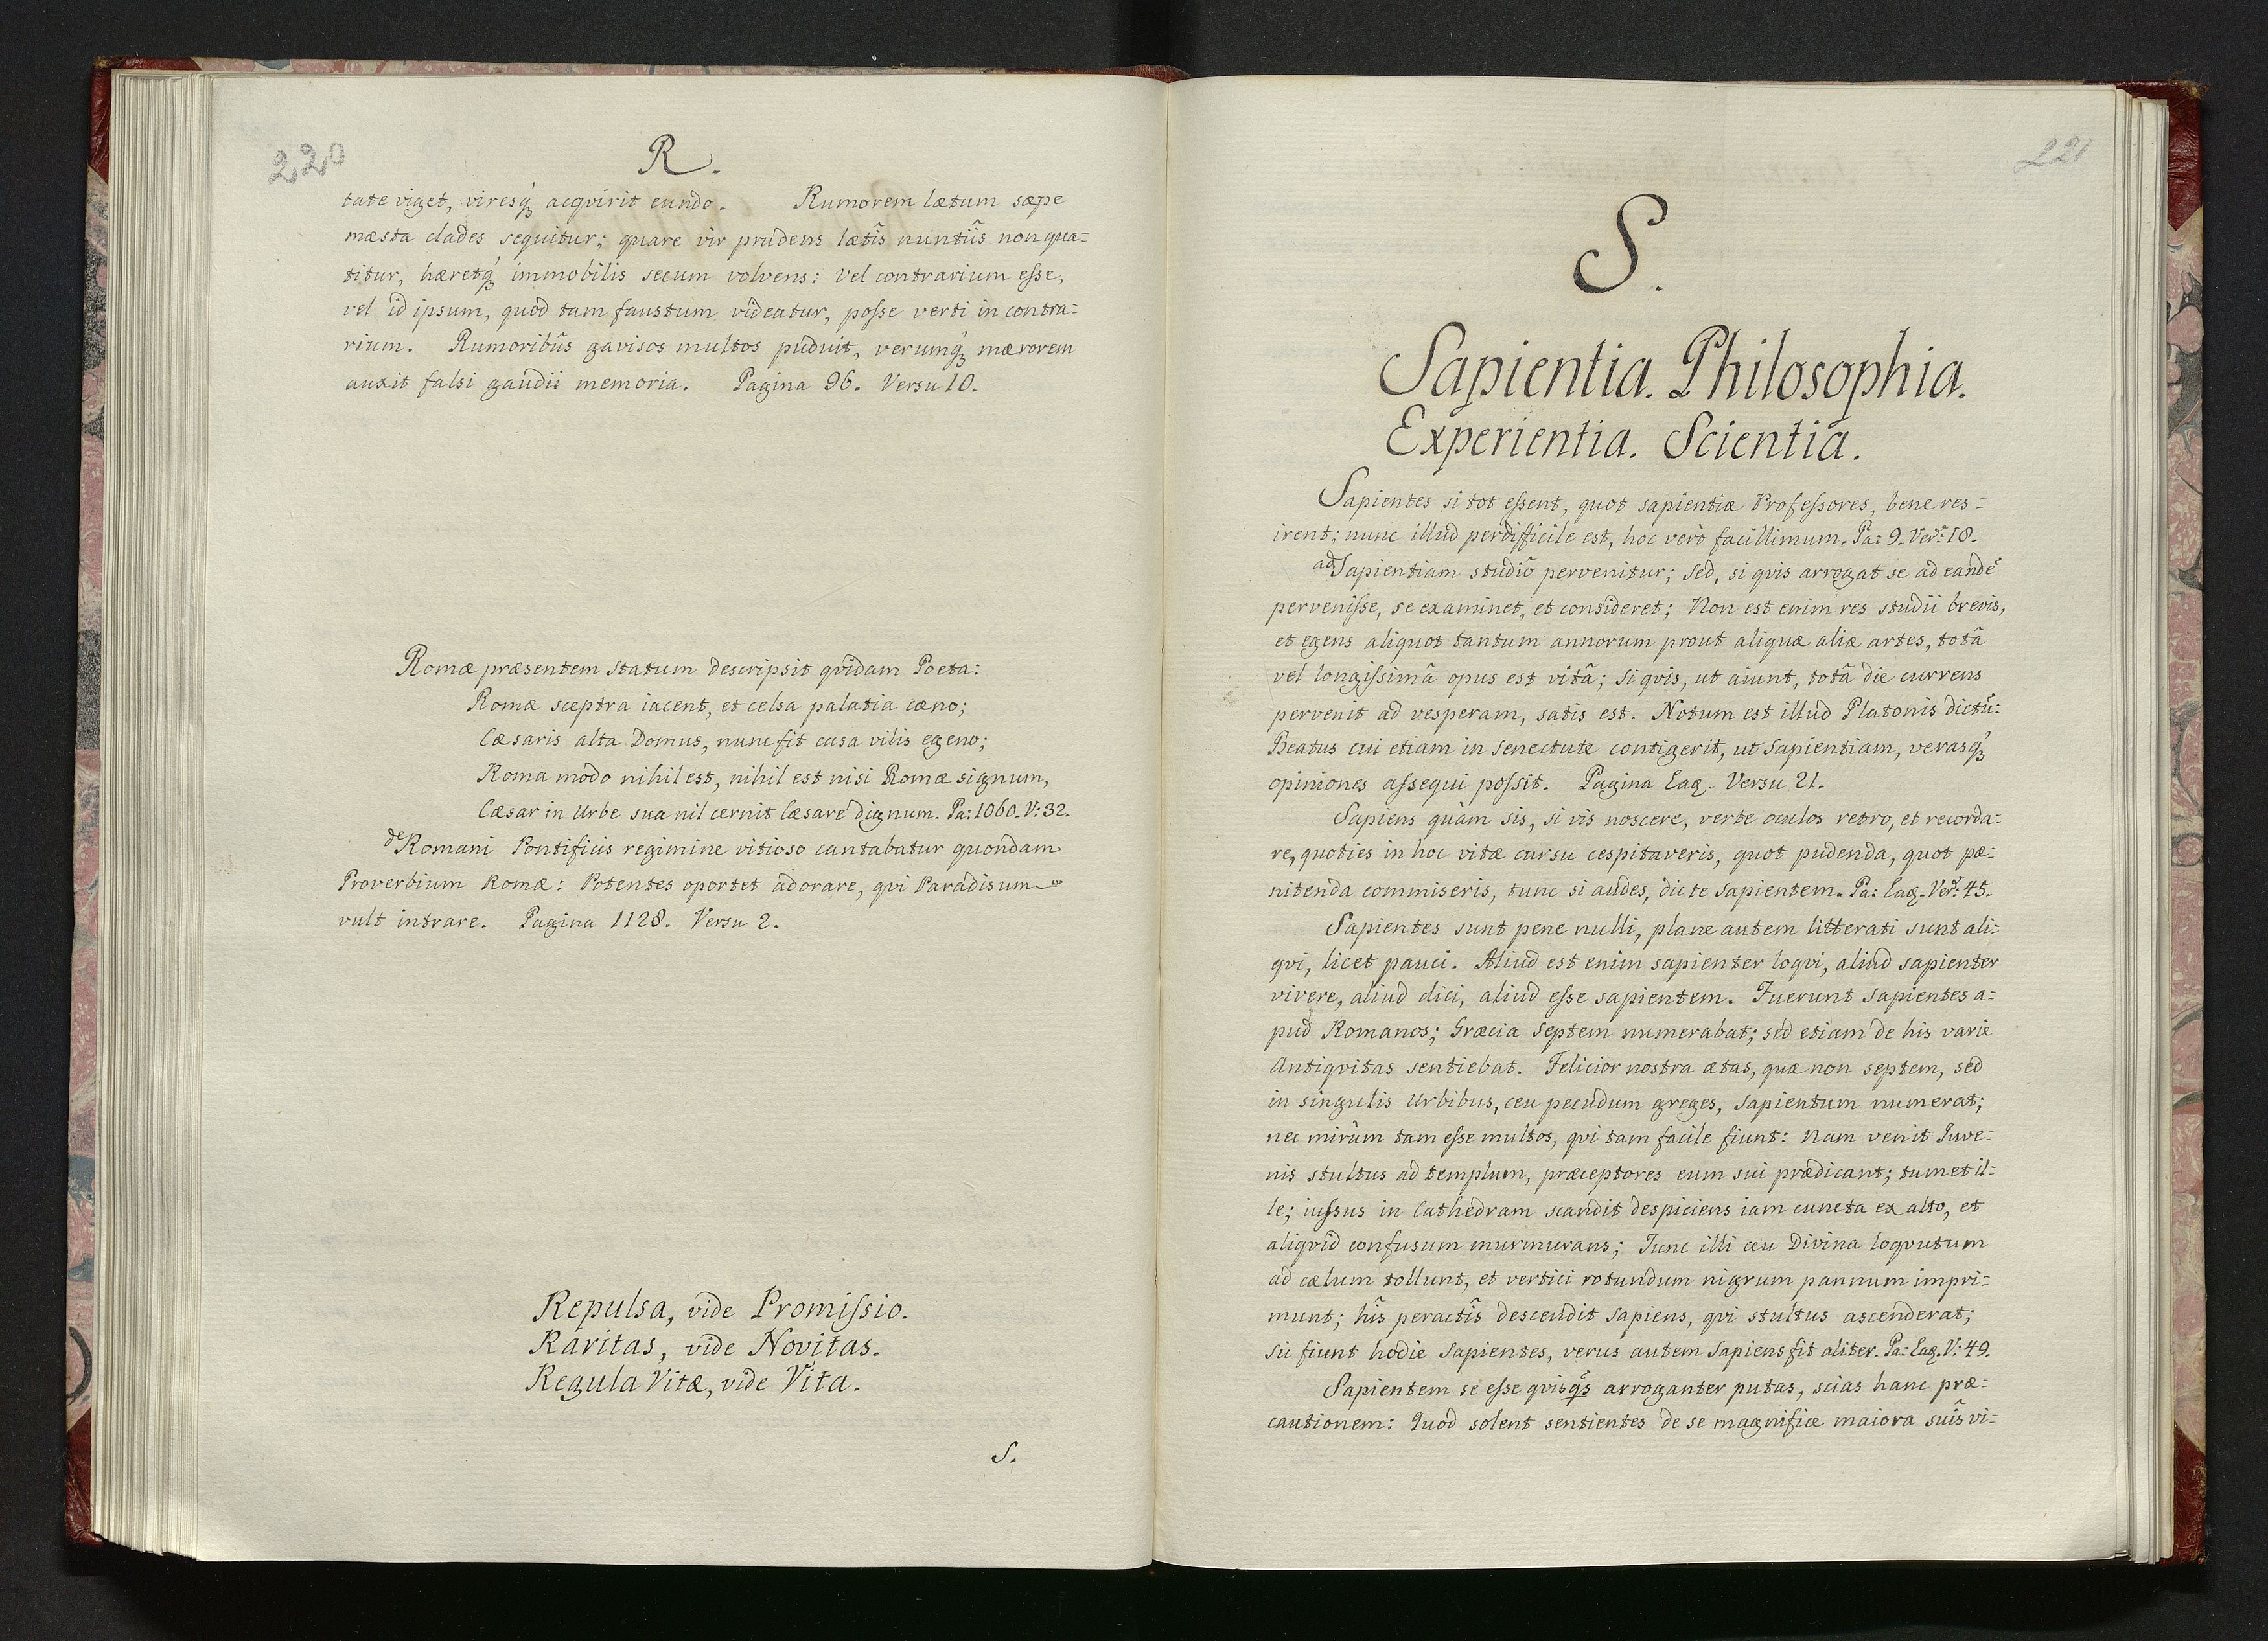 220
R.
tate viget, viresq́ꝫ acqvirit eundo. Rumorem lætum sæpe
mæsta clades sequitur; quare vir prudens lætîs nuntiîs non qua=
titur, hæretq́ꝫ immobilis secum volvens: vel contrarium eſse,
vel id ipsum, quod tam faustum videatur, poſse verti in contra=
rium. Rumoribûs gavisos multos puduit, verumq́ꝫ mærorem
auxit falsi gaudii memoria. Pagina 96. Versu 10.
Romæ præsentem statum descripsit qvidam Poeta:
Romæ sceptra iacent, et celsa palatia cæno;
Cæsaris alta Domus, nunc fit casa vilis egeno;
Roma modo nihil est, nihil est nisi Romæ signum,
Cæsar in Urbe sua nil cernit Cæsare dignum. Pa: 1060. V: 32.
de Romani Pontificis regimine vitioso cantabatur quondam
Proverbium Romæ: Potentes oportet adorare, qvi Paradisum
vult intrare. Pagina 1128. Versu 2.
Repulsa, vide Promiſsio.
Raritas, vide Novitas.
Regula Vitæ, vide Vita.
S.
221
S.
Sapientia. Philosophia.
Experientia. Scientia.
Sapientes si tot eſsent, quot sapientiæ Profeſsores, bene res=
irent; nunc illud perdifficile est, hoc verò facillimum. Pa: 9. Verˢ: 18.
ad Sapientiam studiô pervenitur; sed, si qvis arrogat se ad eandē
perveniſse, se examinet, et consideret; Non est enim res studii brevis,
et egens aliquot tantum annorum prout aliquæ aliæ artes, totâ
vel longiſsimâ opus est vitâ; si qvis, ut aiunt, totâ die currens
pervenit ad vesperam, satis est. Notum est illud Platonis dictū:
Beatus cui etiam in senectute contigerit, ut sapientiam, verasq́ꝫ
opiniones aſsequi poſsit. Pagina Eaq. Versu 21.
Sapiens quàm sis, si vis noscere, verte oculos retro, et recorda=
re, quoties in hoc vitæ cursu cespitaveris, quot pudenda, quot pæ=
nitenda commiseris, tunc si audes, dic te sapientem. Pa: Eaq. Verˢ: 45.
Sapientes sunt pene nulli, plane autem litterati sunt ali=
qvi, licet pauci. Aliud est enim sapienter loqvi, aliud sapienter
vivere, aliud dici, aliud eſse sapientem. Fuerunt sapientes a=
pud Romanos; Græcia septem numerabat; sed etiam de his varie
Antiqvitas sentiebat. Felicior nostra ætas, quæ non septem, sed
in singulis Urbibus, ceu pecudum greges, sapientum numerat;
nec mirûm tam eſse multos, qvi tam facile fiunt: Nam venit Juve=
nis stultus ad templum, præceptores eum sui prædicant; tumet il=
le; iuſsus in Cathedram scandit despiciens iam cuncta ex alto, et
aliqvid confusum murmurans; Tunc illi ceu Divina loqvutum
ad cælum tollunt, et vertici rotundum nigrum pannum impri=
munt; hîs peractîs descendit sapiens, qvi stultus ascenderat;
sic fiunt hodie sapientes, verus autem sapiens fit aliter. Pa: Eaq. V: 49.
Sapientem se eſse qvisqs̃ arroganter putas, scias hanc præ=
cautionem: Quod solent sentientes de se magnificæ maiora suîs vi=